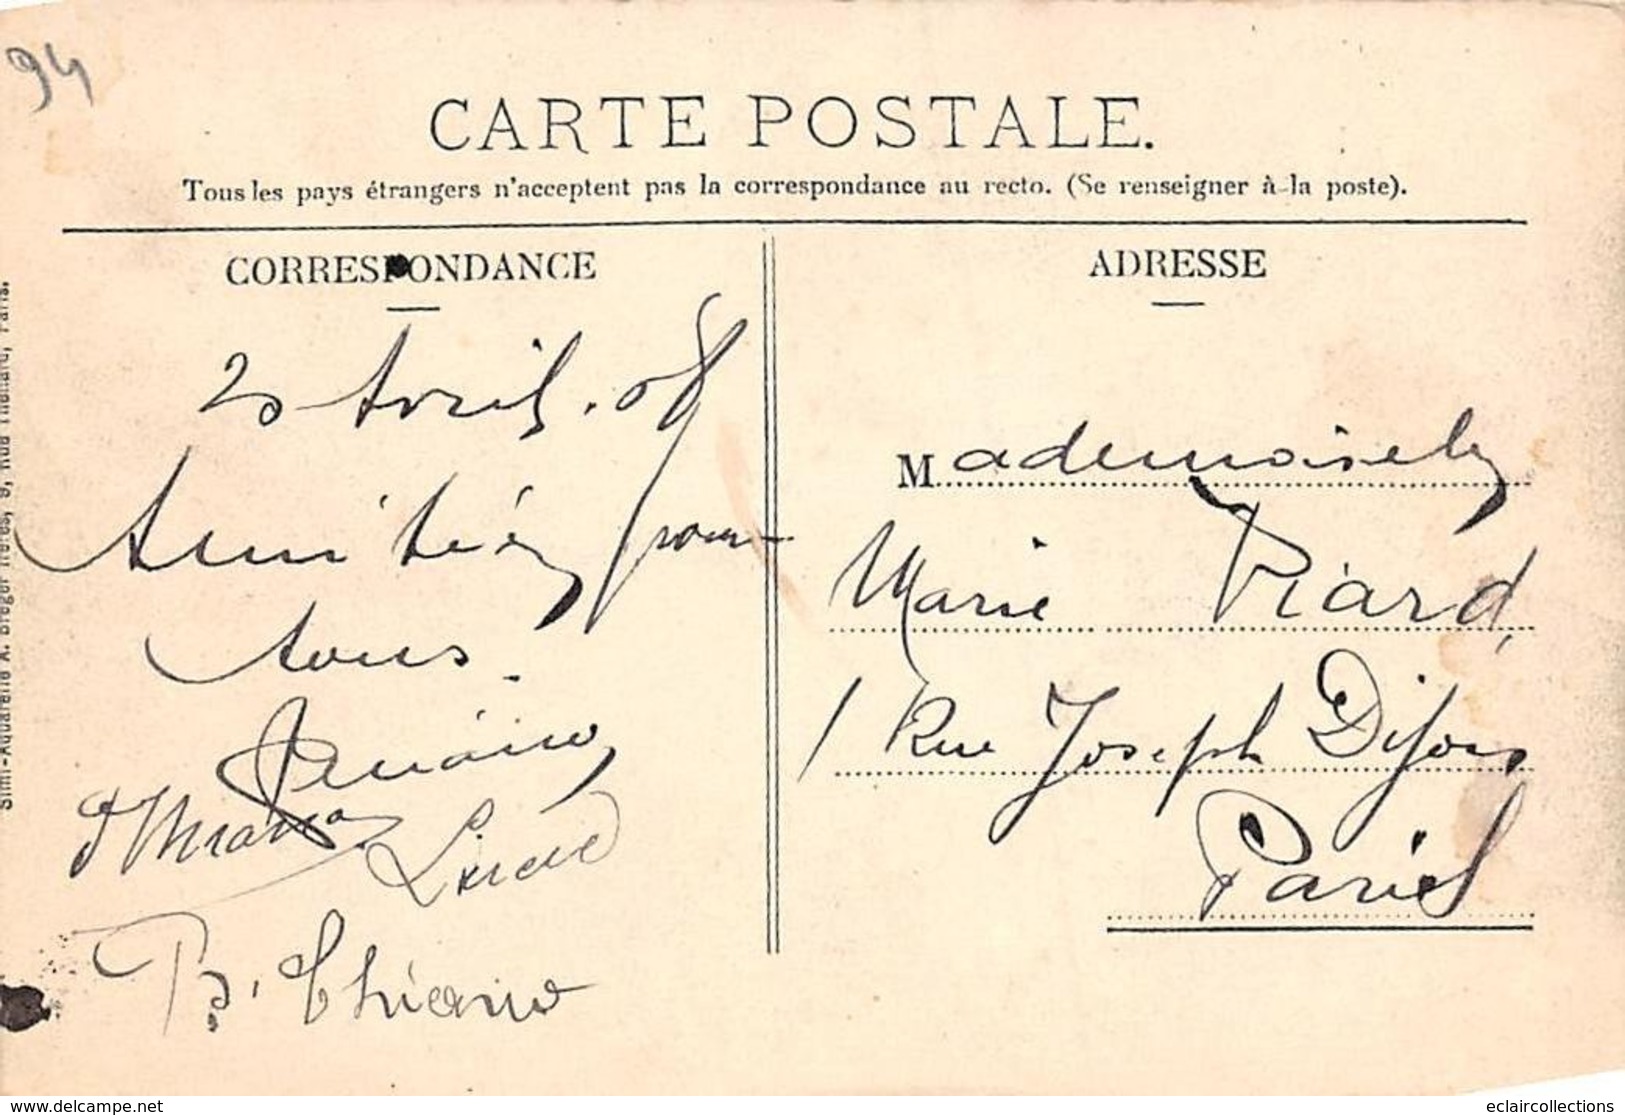 94
CARTE POSTALE.
Tous les pays étrangers n'acceptent pas la correspondance au recto. (Se renseigner à la poste).
CORRESPONDANCE
20 Avril. 08
Amitiés pour
tous.
Lucie
B. Thierno
ADRESSE
Mademoiselle
Marie Piard,
1 Rue Joseph Dijon
Paris
Simi-Aquarelle A. Breger frères, 9, Rue Thénard, Paris.
www.delcampe.net
eclaircollections